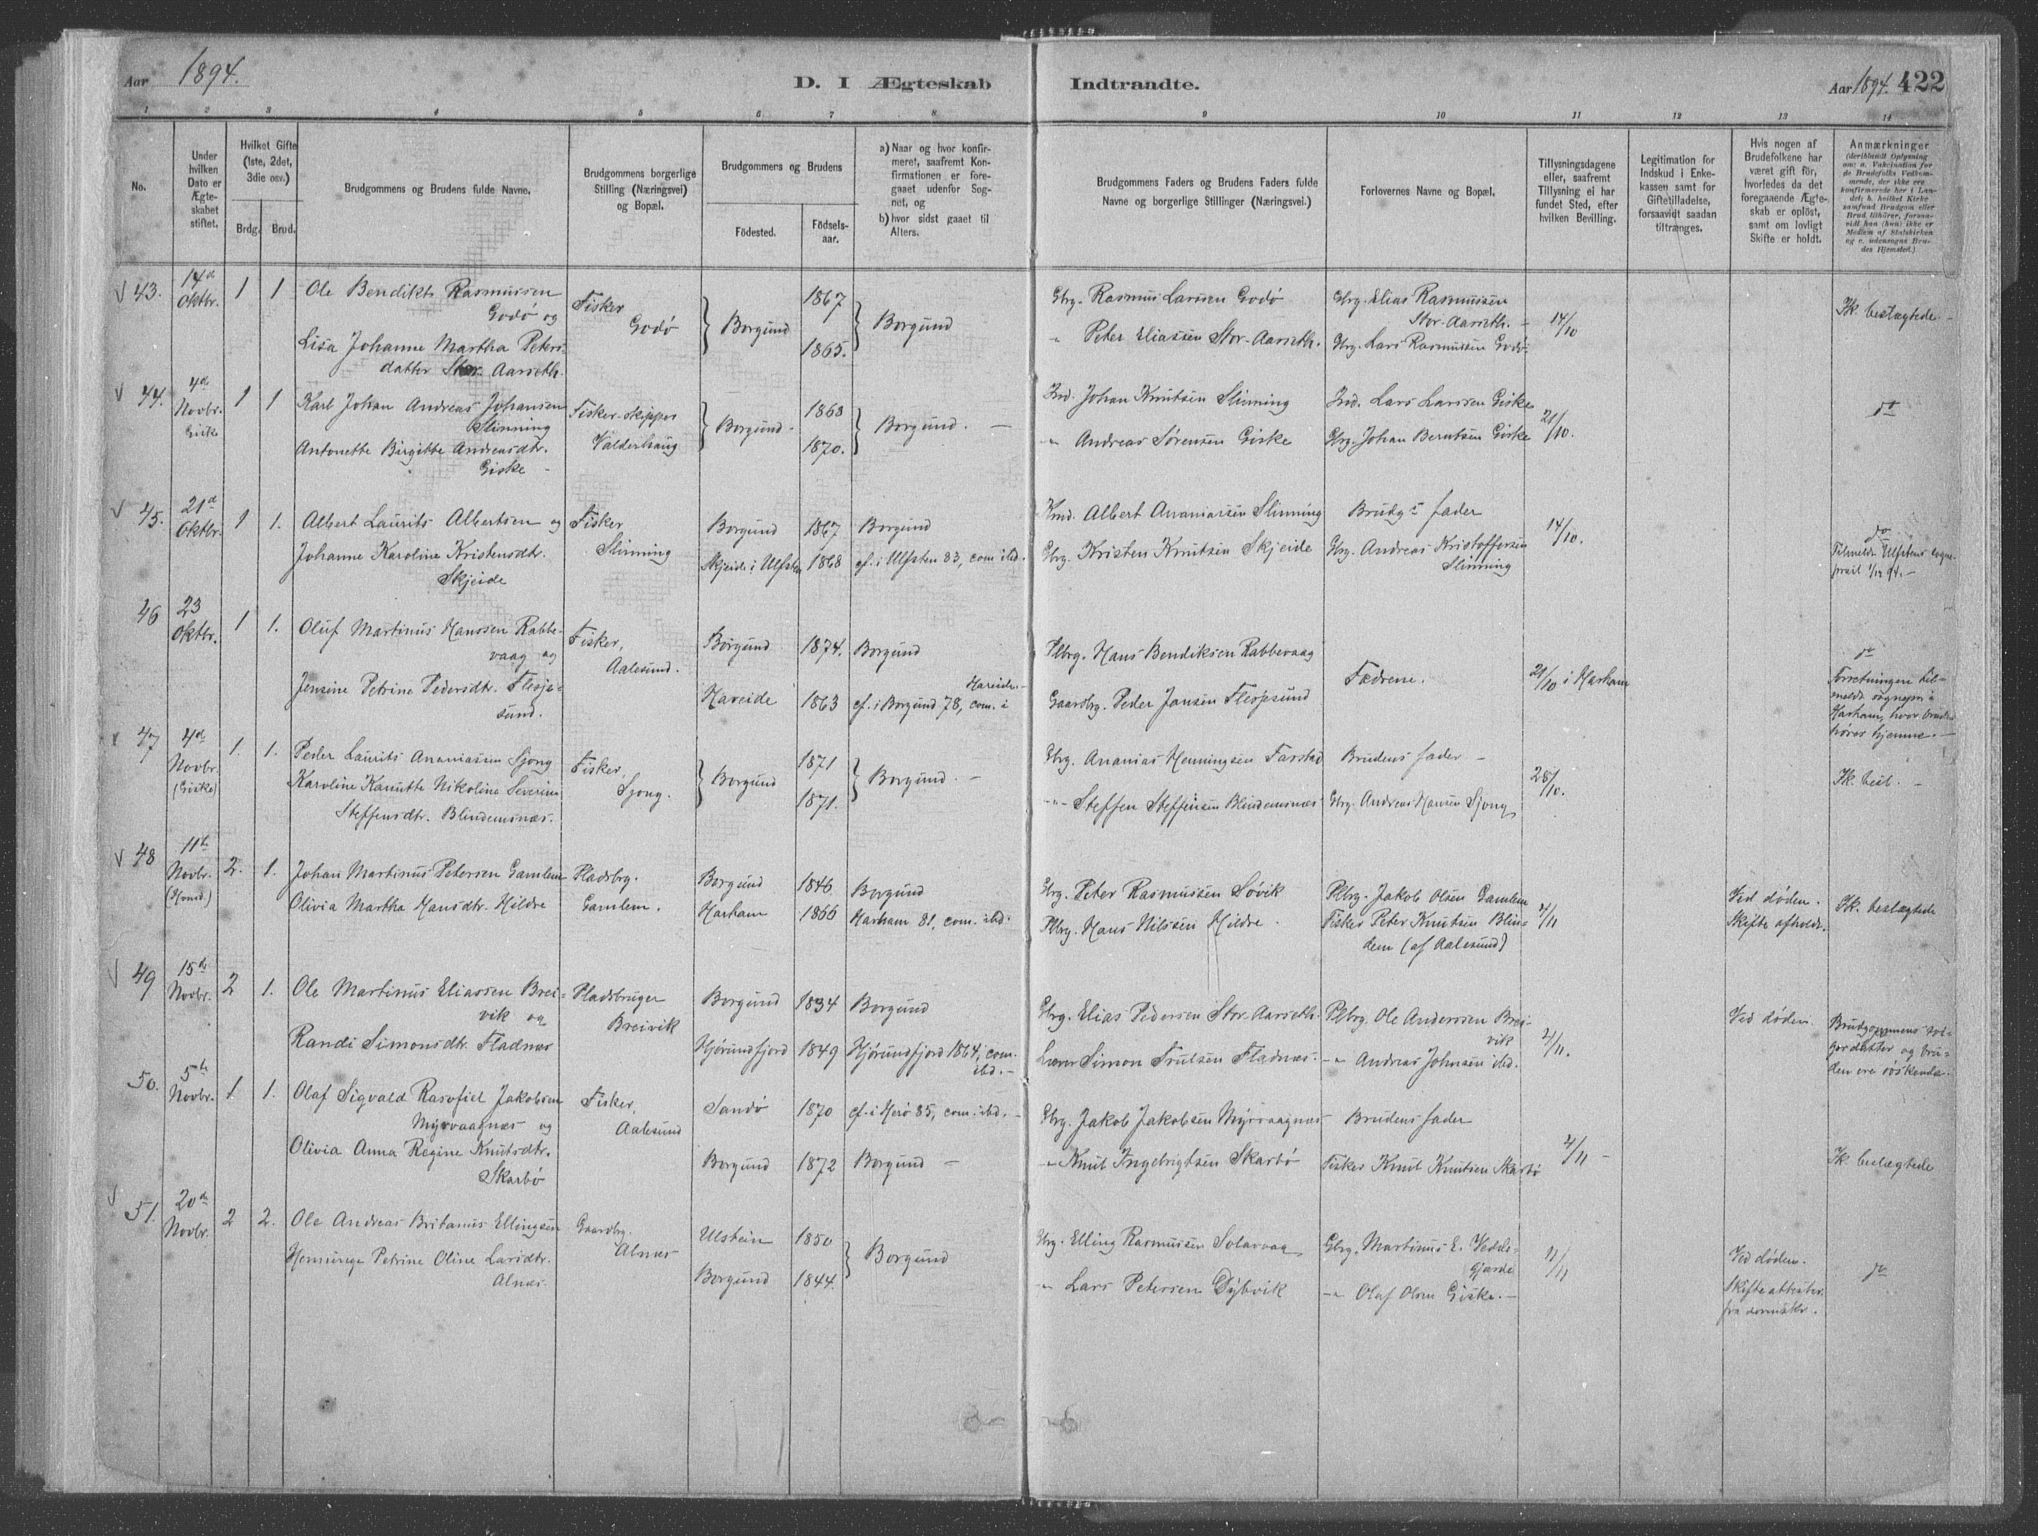 Aar 1894.
D. I Ægteskab Indtraadte.
Aar 1894. 422
1 2 3 4 5 6 7 8 9 10 11 12 13 14
No.
Under hvilken Dato er Ægteskabet stiftet.
Hvilket Gifte (1ste, 2det, 3die osv.)
Brdg. Brud.
Brudgommens og Brudens fulde Navne.
Brudgommens borgerlige Stilling (Næringsvei) og Bopæl.
Brudgommens og Brudens
Födested.
Födsels-aar.
a) Naar og hvor konfirmeret, saafremt Konfirmationen er foregaaet udenfor Sognet, og
b) hvor sidst gaaet til Alters.
Brudgommens Faders og Brudens Faders fulde Navne og borgerlige Stillinger (Næringsvei.)
Forlovernes Navne og Bopæl.
Tillysningsdagene eller, saafremt Tillysning ei har fundet Sted, efter hvilken Bevilling.
Legitimation for Indskud i Enkekassen samt for Giftetilladelse, forsaavidt saadan tiltrænges.
Hvis nogen af Brudefolkene har været gift för, hvorledes da det foregaaende Ægteskab er oplöst, samt om lovligt Skifte er holdt.
Anmærkninger
43. 14d Oktbr. 1 1 Ole Bendikt Rasmussen Godø og Fisker Godø Borgund 1867 Borgund Gbrg. Rasmus Larsen Godø Gbrg. Elias Rasmussen Stor-Aarseth. 14/10 Ik. beslægtede
Lisa Johanne Martha Petersdatter Stor-Aarseth. 1865. " Peter Eliassen Stor-Aarseth. Gbrg. Lars Rasmussen Godø
44. 4d Novbr. Giske 1 1 Karl Johan Andreas Johansen Slinning Fisker-skipper Valderhaug Borgund. 1863 Borgund. Ind. Johan Knutsen Slinning Ind. Lars Larssen Giske 21/10. do
Antonette Birgitte Andreasdtr. Giske 1870. " Andreas Sørensen Giske Gbrg. Johan Berntsen Giske
45. 21d Oktbr. 1 1. Albert Laurits Albertsen og Fisker Slinning Borgund 1867 Borgund Albert Ananiassen Slinning Brudgs fader 14/10. do
Johanne Karoline Kristensdtr. Skjeide Skjeide i Ulfsten 1868 cf. i Ulfsten 83, com. ibd. Gbrg. Kristen Knutsen Skjeide Gbrg. Andreas Kristoffersen Slinning Tilmeldt Ulfstens sogneprest
46 23 Oktbr. 1 1. Oluf Martinus Hanssen Rabbevaag og Fisker, Aalesund. Borgund 1874. Borgund Plbrg. Hans Bendiksen Rabbevaag Fædrene. 21/10 i Harham do
Jensine Petrine Pedersdtr. Flesjesund. Hareide 1863 cf. i Borgund 78, com. i Hareide. Gaardbrg. Peder Jansen Flesjesund Forretningen tilmeldt sognepr. i Harham, hvor høres hjemme.
47 4d Novbr. (Giske) 1. 1. Peder Laurits Ananiassen Sjong Fisker, Sjong. Borgund 1871 Borgund. Gbrg. Ananias Henningsen Farstad Brudens fader 28/10. Ik. besl.
Karoline Kanutte Nikoline Severine Steffensdtr. Blindemsnæs. 1871. Steffen Steffensen Blindemsnæs Gbrg. Andreas Hansen Sjong
48 11te Novbr. 2. 1. Johan Martinus Petersen Gamlem Pladsbrg. Gamlem. Borgund 1846 Borgund Gbrg. Peter Rasmussen Søvik Plbrg. Jakob Olsen Gamlem 4/11 Ved døden. Skifte afholdt. Ik. beslægtede
Olivia Martha Hansdtr. Hildre Harham 1866 Harham 81, com. ibd. Plbrg. Hans Nilssen Hildre. Fisker Peter Knutsen Blindem (af Aalesund)
49 15de Novbr. 2 1. Ole Martinus Eliassen Breivik og Pladsbruger Breivik Borgund 1834 Borgund Gbrg. Elias Pedersen Stor-Aarseth. Plbrg. Ole Anderssen Breivik 4/11. Ved døden Brudgommens og bruden ere søskende.
Randi Simonsdtr. Fladnæs Hjørundfjord 1849 Hjørundfjord 1864, com. ibd. Lærer Simon Trulsen Fladnæs. Andreas Johnsen ibd.
50. 5te Novbr. 1 1. Olaf Sigvald Jakobsen Myrvaagnæs og Fisker, Aalesund Sandø 1870 cf. i Herø 85, com. ibd. Gbrg. Jakob Jakobsen Myrvaagnæs Brudens fader 4/11 Ik. beslægtede
Olivia Anna Regine Knutsdtr. Skarbø Borgund 1872 Borgund " Knut Ingebrigtsen Skarbø Fisker Knut Knutsen Skarbø
51. 20de Novbr. 2 2. Ole Andreas Britanus Ellingsen Gaardbrg. Alnæs Ulstein 1850 Borgund Gbrg. Elling Rasmussen Gbrg. Martinus E. Veddegjærde 11/11 Ved døden. Skifteattester fra do
Petrine Oline Larsdtr. Alnæs. Borgund 1844. " Lars Petersen Dybvik Olaf Olsen Giske.